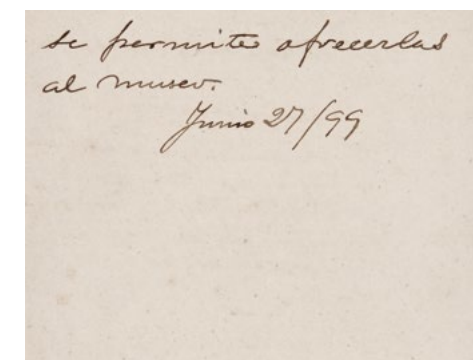 se permite ofrecerlas
al museo.
Junio 27/99